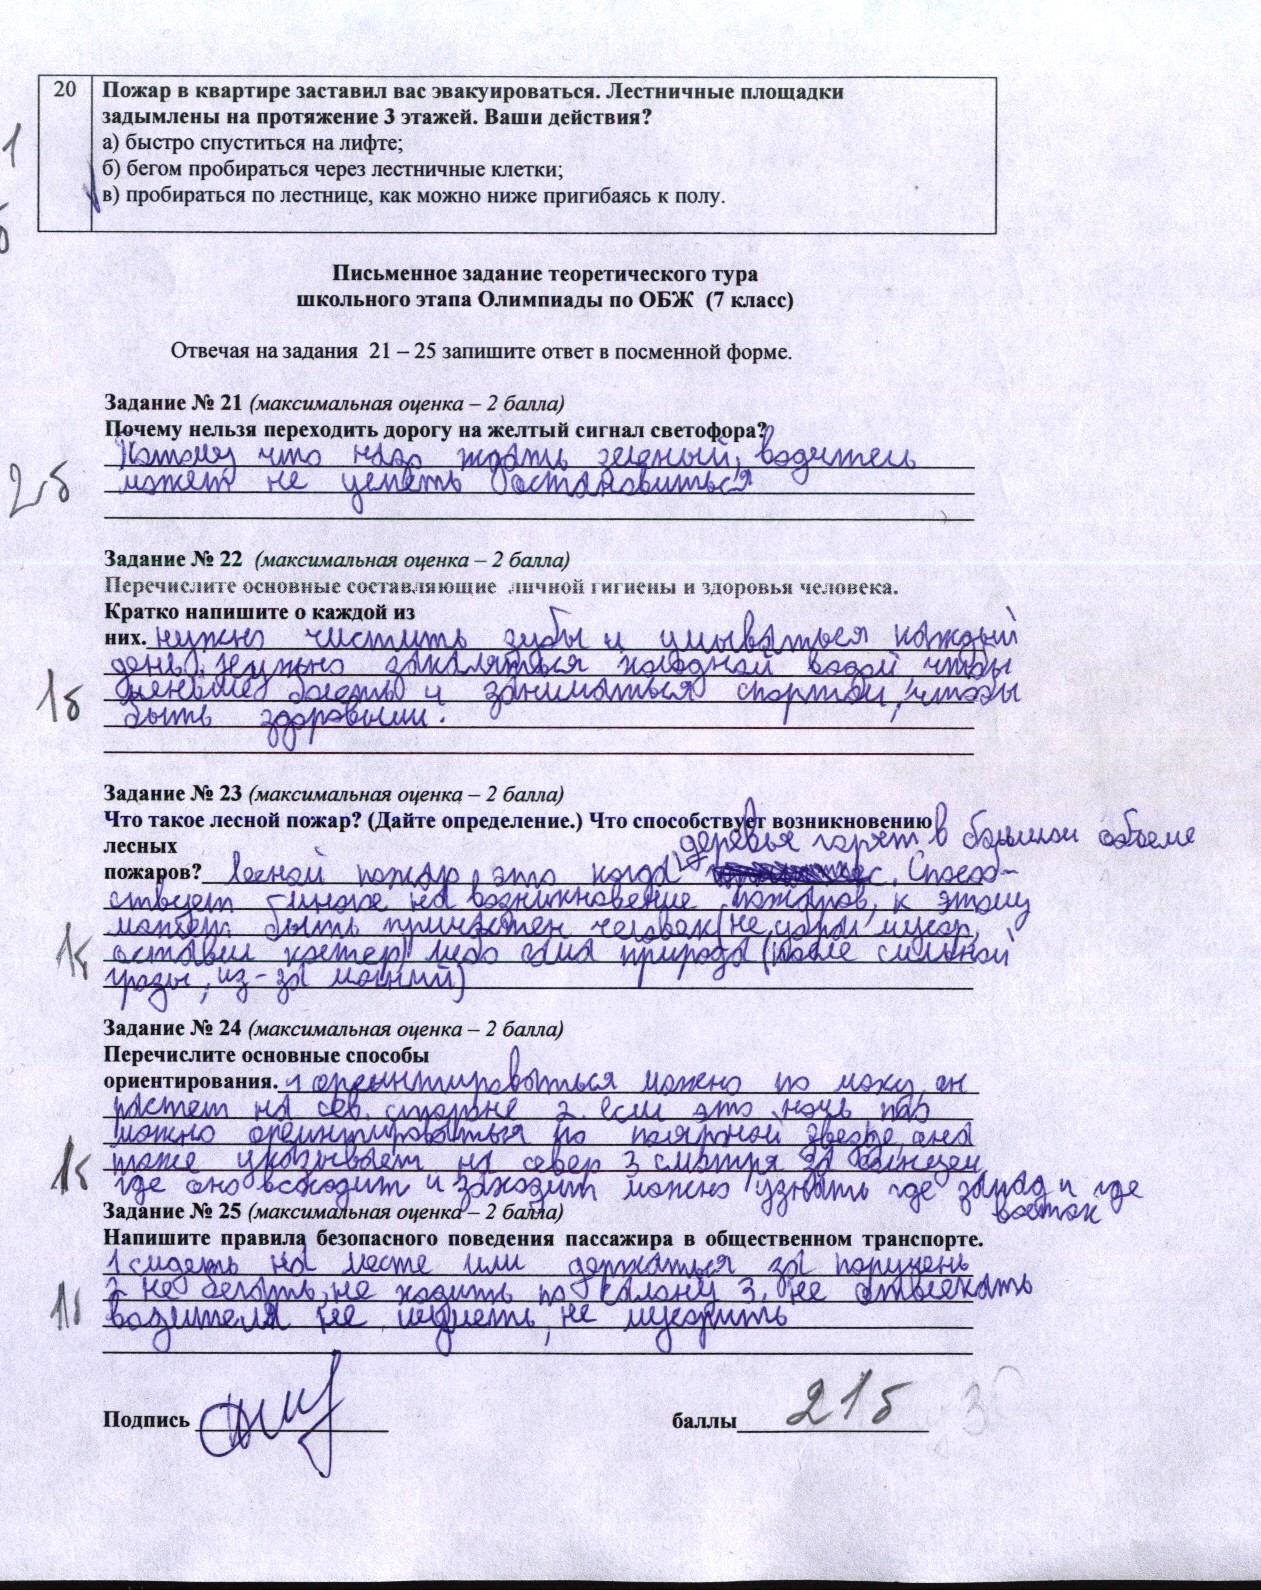 20 Пожар в квартире заставил вас эвакуироваться. Лестничные площадки
задымлены на протяжение 3 этажей. Ваши действия?
1 а) быстро спуститься на лифте;
б) бегом пробираться через лестничные клетки;
в) пробираться по лестнице, как можно ниже пригибаясь к полу.
б
Письменное задание теоретического тура
школьного этапа Олимпиады по ОБЖ (7 класс)
Отвечая на задания 21 – 25 запишите ответ в посменной форме.
Задание № 21 (максимальная оценка – 2 балла)
Почему нельзя переходить дорогу на желтый сигнал светофора?
Потому что надо ждать зеленый, водитель
2б может не успеть остановиться
Задание № 22 (максимальная оценка – 2 балла)
Перечислите основные составляющие личной гигиены и здоровья человека.
Кратко напишите о каждой из
них. нужно чистить зубы и умываться каждый
день, нужно закаляться холодной водой чтобы
1б меньше болеть и заниматься спортом, чтобы
быть здоровыми.
Задание № 23 (максимальная оценка – 2 балла)
Что такое лесной пожар? (Дайте определение.) Что способствует возникновению
лесных деревья горят в большом объеме
пожаров? лесной пожар это когда Способ-
ствует многое на возникновение пожаров, к этому
может быть причастен человек (не убрал мусор,
1б оставил костер) либо сама природа (после сильной
грозы, из-за молний)
Задание № 24 (максимальная оценка – 2 балла)
Перечислите основные способы
ориентирования. 1 ориентироваться можно по моху он
растет на сев. стороне 2. если это ночь то
можно ориентироваться по полярной звезде, она
1б тоже указывает на север 3 смотря за солнцем
где оно всходит и заходит можно узнать где запад и где
восток
Задание № 25 (максимальная оценка – 2 балла)
Напишите правила безопасного поведения пассажира в общественном транспорте.
1 сидеть на месте или держаться за поручень
2 не бегать, не ходить по салону 3. не отвлекать
1б водителя не шуметь, не мусорить
Подпись баллы 21б